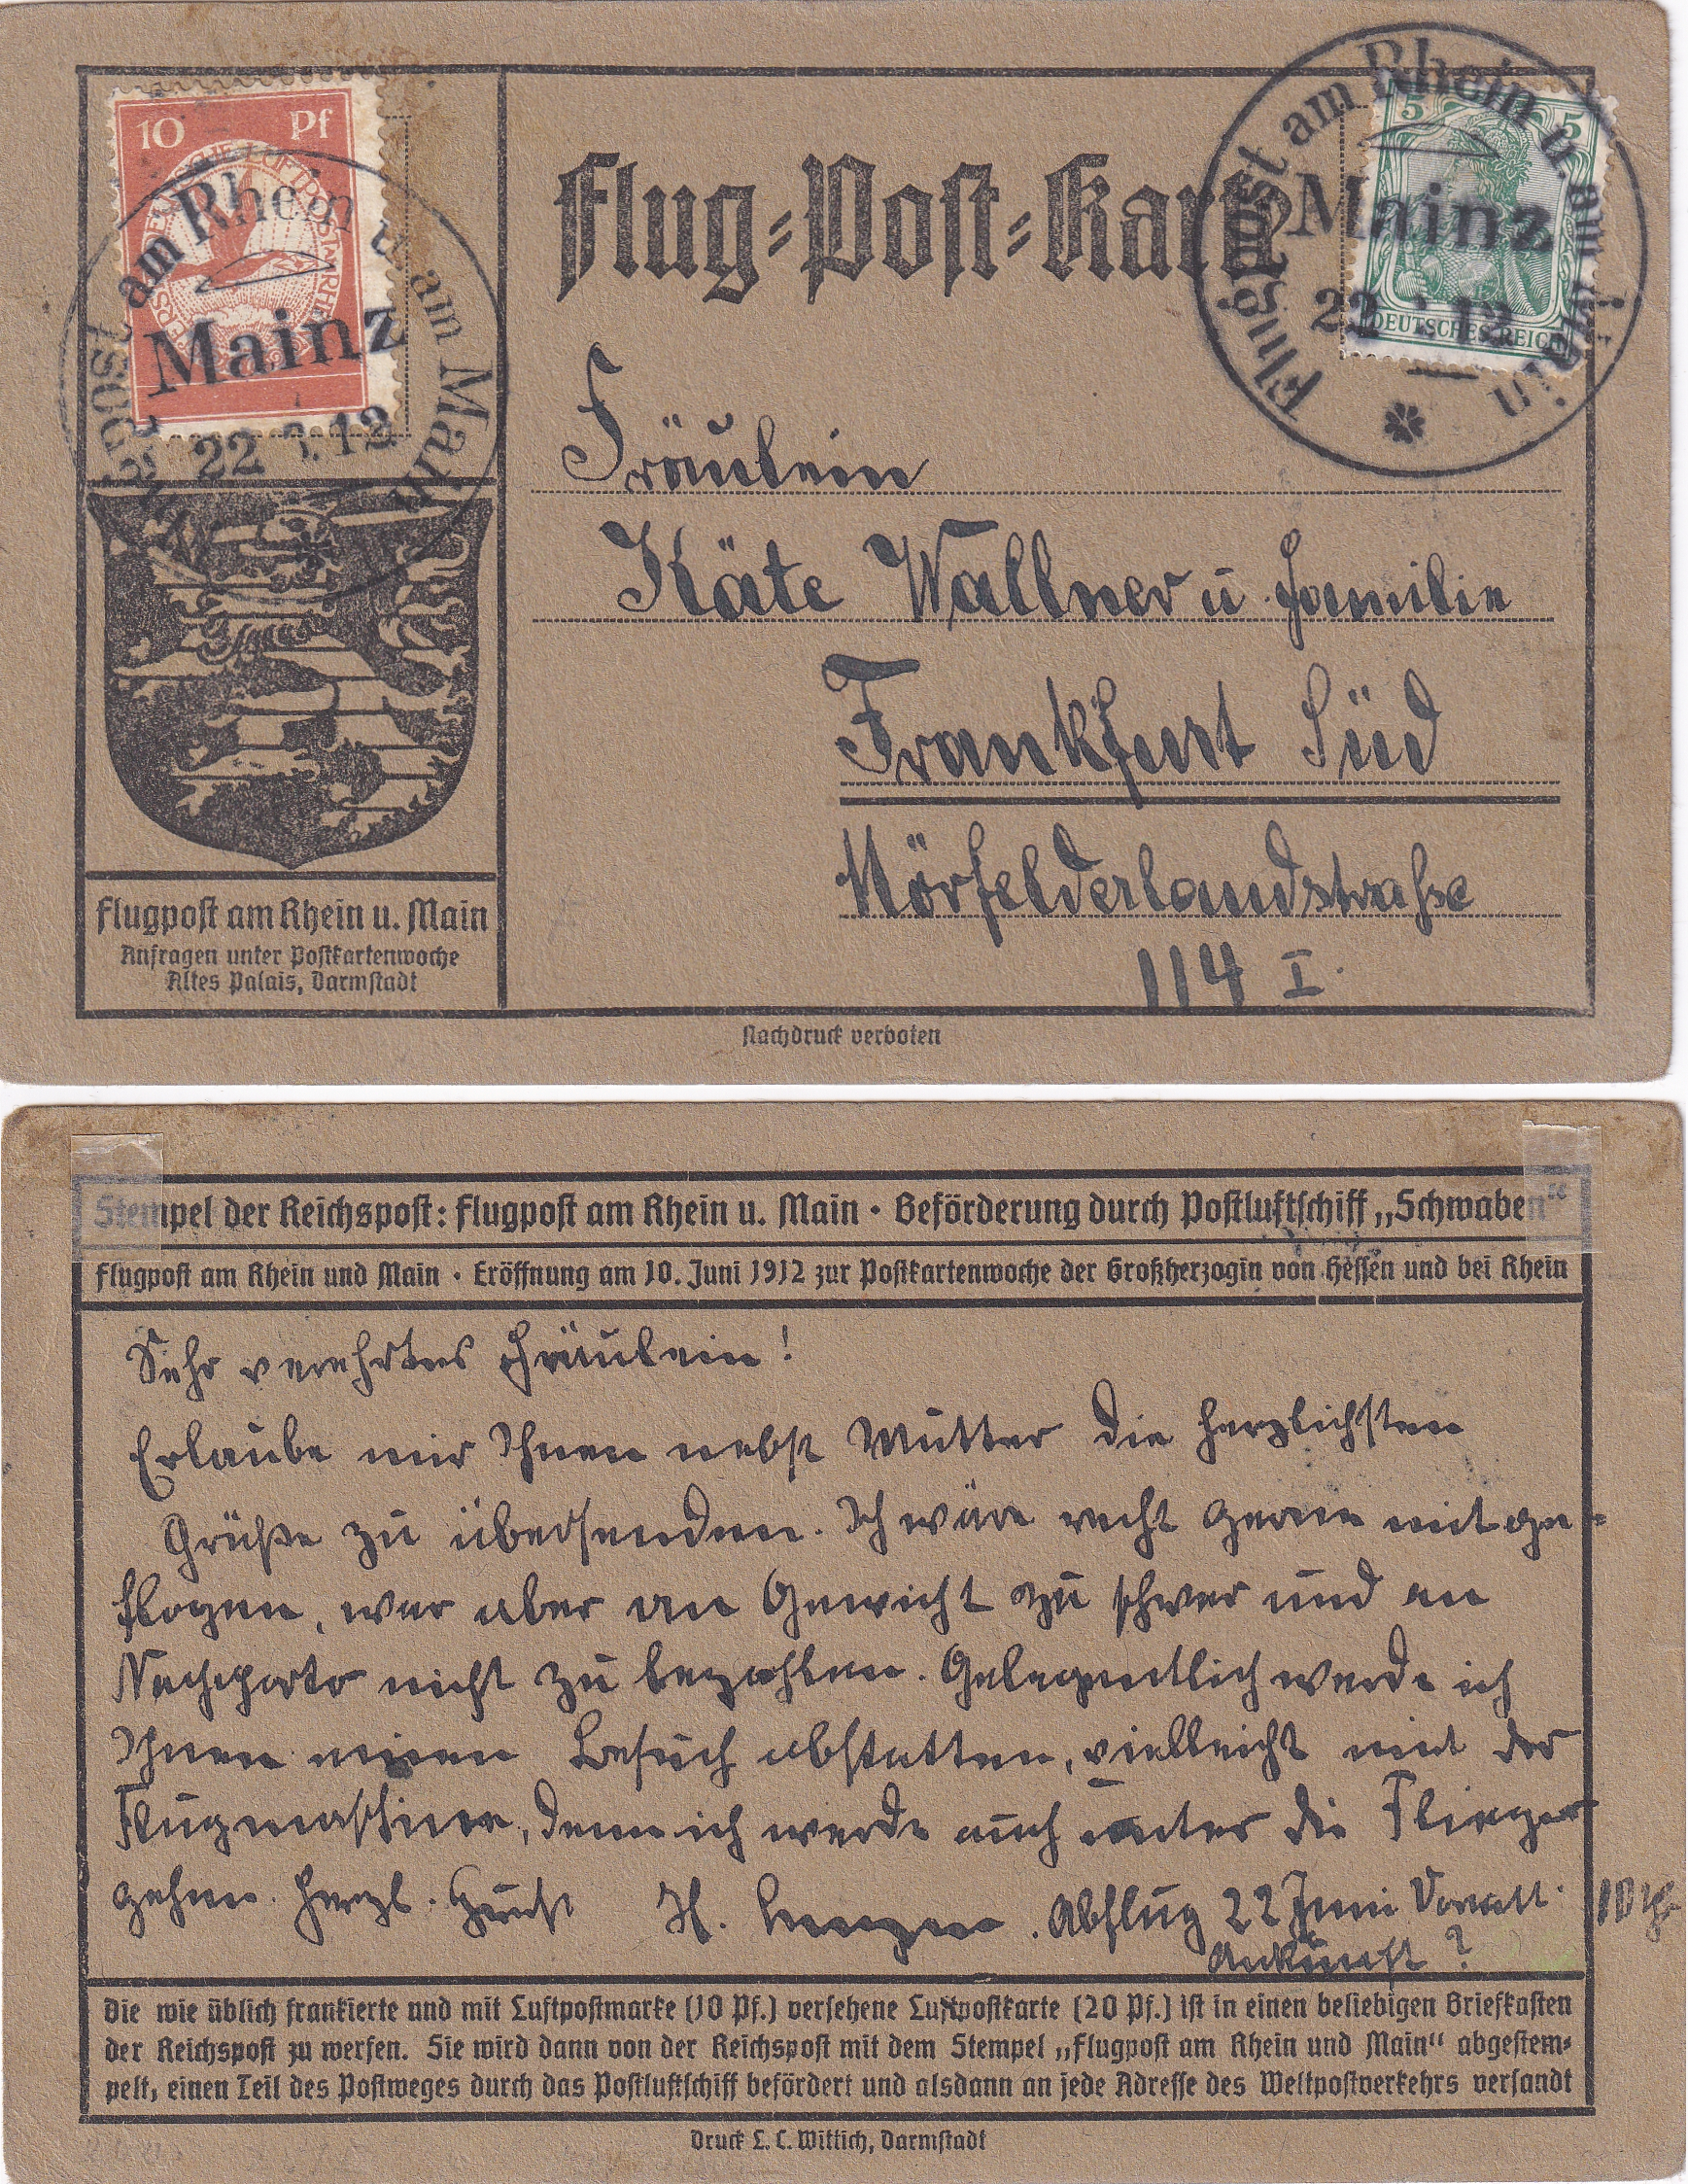 10 Pf
Flugpost am Rhein u. am Main
Mainz
22 12
Flug-Post-Karte
5 5
DEUTSCHES REICH
Flugpost am Rhein u. am Main
Mainz
22 12
Fräulein
Käte Wallner u Familie
Frankfurt Süd
Mörfelderlandstrasse
114 I.
Flugpost am Rhein u. Main
Anfragen unter Postkartenwoche
Altes Palais, Darmstadt
Nachdruck verboten
Stempel der Reichspost: Flugpost am Rhein u. Main · Beförderung durch Postluftschiff „Schwaben“
Flugpost am Rhein und Main · Eröffnung am 10. Juni 1912 zur Postkartenwoche der Großherzogin von Hessen und bei Rhein
Sehr verehrtes Fräulein!
Erlaube mir Ihnen nebst Mutter die herzlichsten
Grüße zu übersenden. Ich wäre recht gerne mitge-
flogen, war aber an Gewicht zu schwer und an
Nachporto nicht zu bezahlen. Gelegentlich werde ich
Ihnen meinen Besuch abstatten, vielleicht mit der
Flugmaschine, denn ich werde auch unter die Flieger
gehen. Herzl. Gruß H. Abflug 22 Juni Vormitt. 10 Uhr
Ankunft?
Die wie üblich frankierte und mit Luftpostmarke (10 Pf.) versehene Luftpostkarte (20 Pf.) ist in einen beliebigen Briefkasten
der Reichspost zu werfen. Sie wird dann von der Reichspost mit dem Stempel „Flugpost am Rhein und Main“ abgestem-
pelt, einen Teil des Postweges durch das Postluftschiff befördert und alsdann an jede Adresse des Weltpostverkehrs versandt
Druck L. C. Wittich, Darmstadt